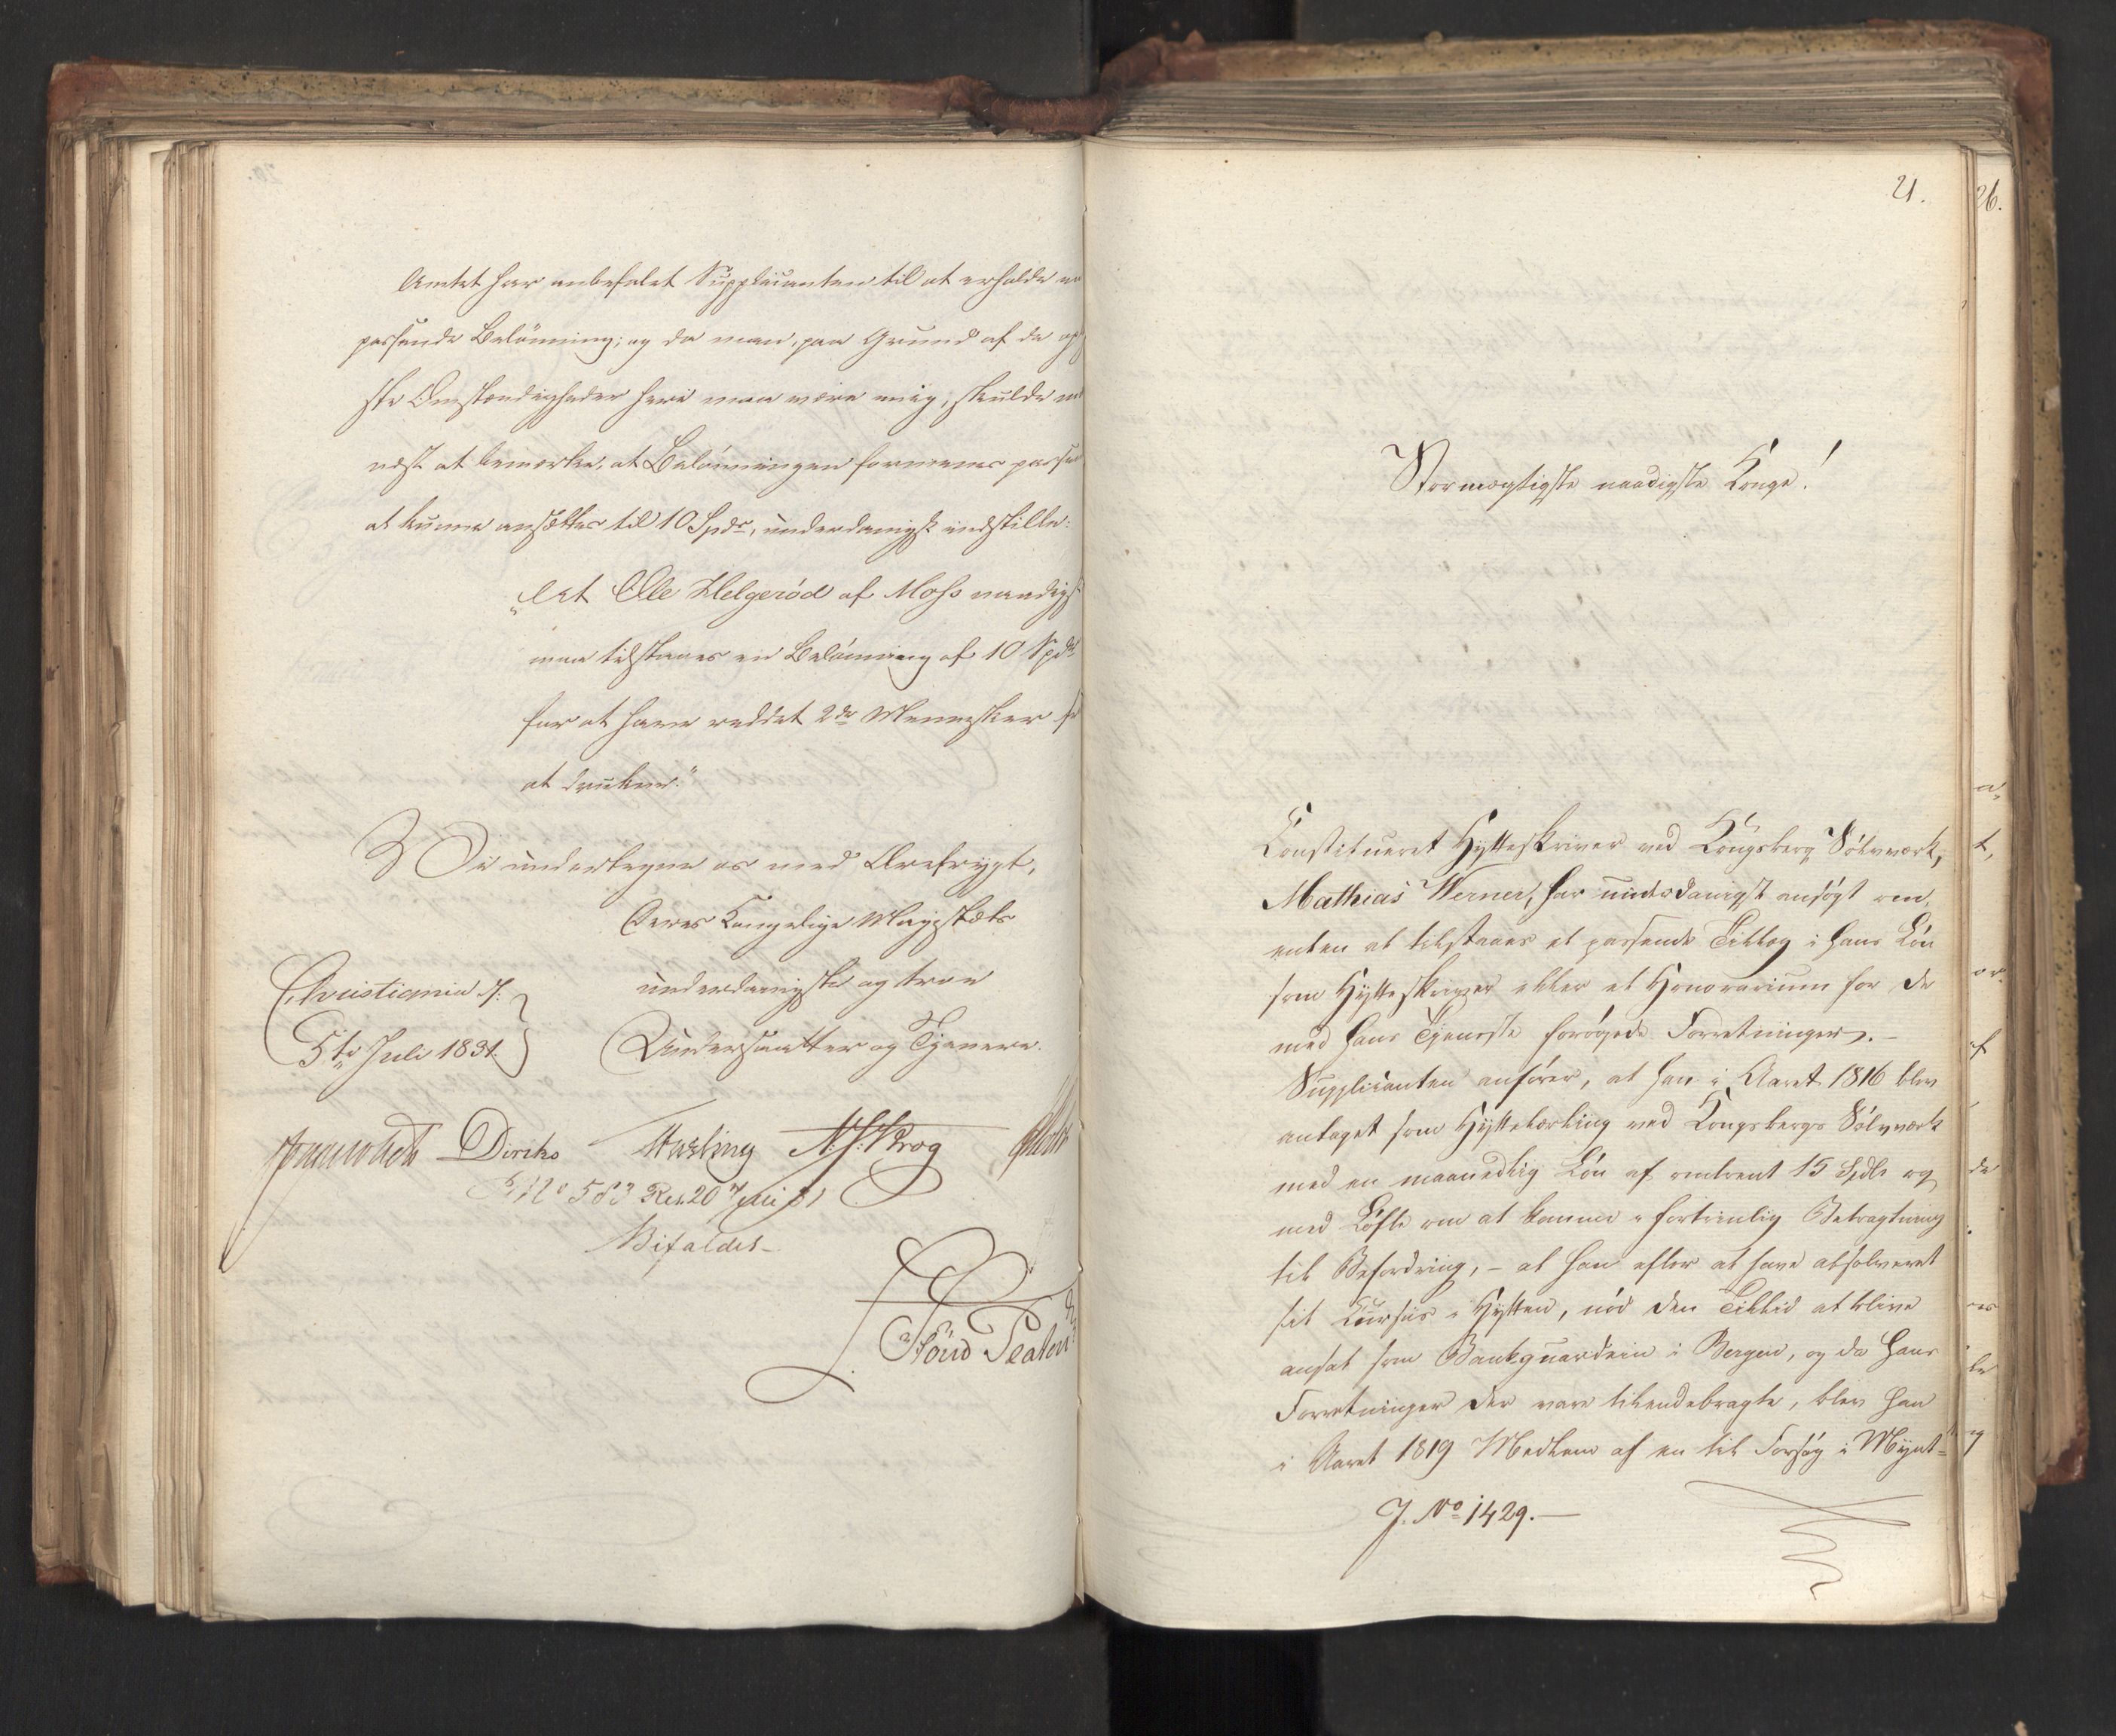 Amtet har anbefalet Supplicanten til at erholde en
passende Belönning; og da man, paa Grund af de op
ste Omstændigheder heri maa være enig, skulde m
næst at bemærke, at Belönningen formenes passe
at kunne ansættes til 10 Spdr, underdanigst indstille:
"At Ole Helgeröd af Moss naadigst
maa tilstaaes en Belönning af 10 Spdr
for at have reddet 2de Mennesker fr
at drukne."
Vi undertegne os med Ærefrygt,
Deres Kongelige Majestæts
Christiania d:
underdanigste og troe
5te Juli 1831.
Undersaatter og Tjenere.
Diriks Hasling N. J. Krog
No 583 Res. 20 Juli 31
Bifaldes
21.
26.
Stormægtigste naadigste Konge!
Constitueret Hytteskriver ved Kongsberg Sölvværk,
Mathias Werner, har underdanigst ansögt om,
enten at tilstaaes et passende Tillæg i hans Lön
som Hytteskriver eller et Honorarium for de
med hans Tjeneste forögede Forretninger. -
Supplicanten anförer, at han i Aaret 1816 blev
antaget som Hyttelærling ved Kongsbergs Sölvværk
med en maanedlig Lön af omtrent 15 Spdlr og
med Löfte om at komme i fortrinlig Betragtning
til Befordring, - at han efter at have absolveret
sit Cursus i Hytten, nöd den Tillid at blive
ansat som Bankguardein i Bergen, og da hans
Forretninger der vare tilendebragte, blev han
i Aaret 1819 Medlem af en til Forsög i Mÿnt-
J. No 1429. -